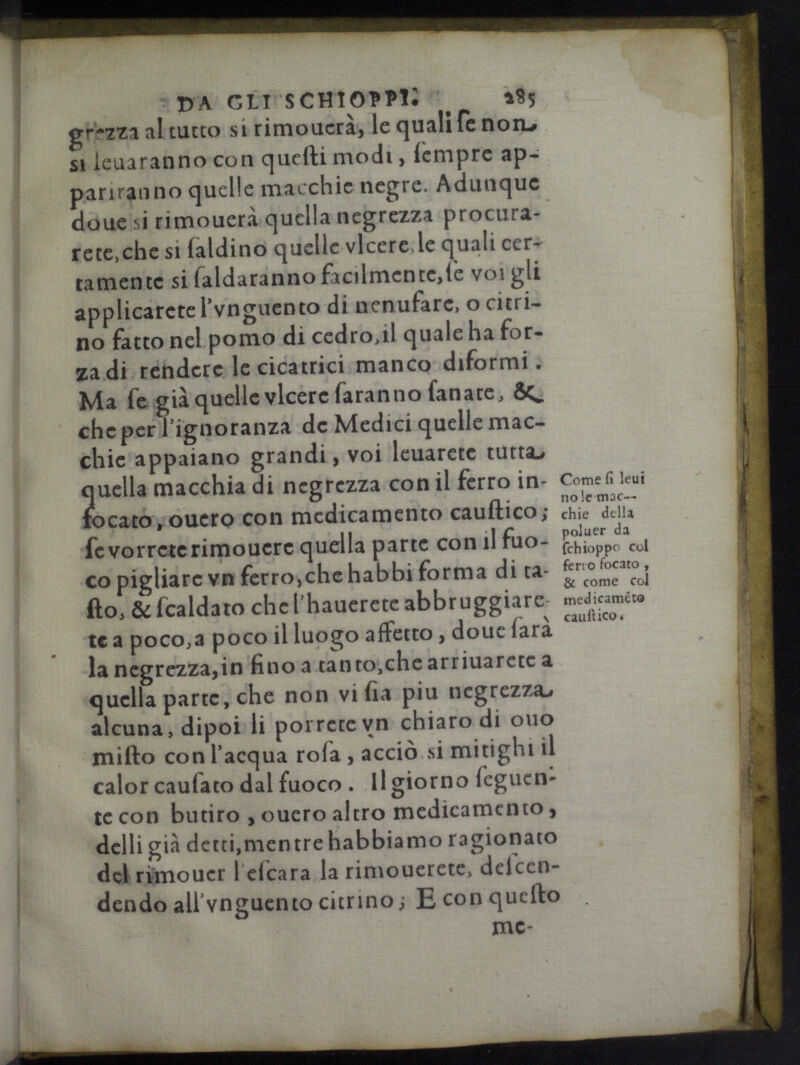 DA GLI SCHIOPPI. 285
grezza al tutto si rimouerà, le quali ſe non
si leuaranno con queſti modi, ſempre ap-
pariranno quelle macchie negre. Adunque
doue si rimouerà quella negrezza procura-
rete, che si ſaldino quelle vlcere, le quali cer-
tamente si ſaldaranno facilmente, ſe voi gli
applicarete l'vnguento di nenufare, o citri-
no fatto nel pomo di cedro, il quale ha for-
za di rendere le cicatrici manco diformi.
Ma ſe già quelle vlcere ſaranno ſanate, &
che per l'ignoranza de Medici quelle mac-
chie appaiano grandi, voi leuarete tutta
quella macchia di negrezza con il ferro in-
focato, ouero con medicamento cauſtico;
ſe vorrete rimouere quella parte con il fuo-
co pigliare vn ferro, che habbi forma di ta-
ſto, & ſcaldato che l'hauerete abbruggiare-
te a poco, a poco il luogo affetto, doue ſarà
la negrezza, in fino a tanto, che arriuarete a
quella parte, che non vi ſia piu negrezza
alcuna, dipoi li porrete vn chiaro di ouo
miſto con l'acqua roſa, acciò si mitighi il
calor cauſato dal fuoco. Il giorno ſeguen-
te con butiro, ouero altro medicamento,
delli già detti, mentre habbiamo ragionato
del rimouer l'eſcara la rimouerete, deſcen-
dendo all'vnguento citrino; E con queſto
me-
Come ſi leui
no le mac--
chie della
poluer da
ſchioppo col
ferro focato,
& come col
medicamẽto
cauſtico.